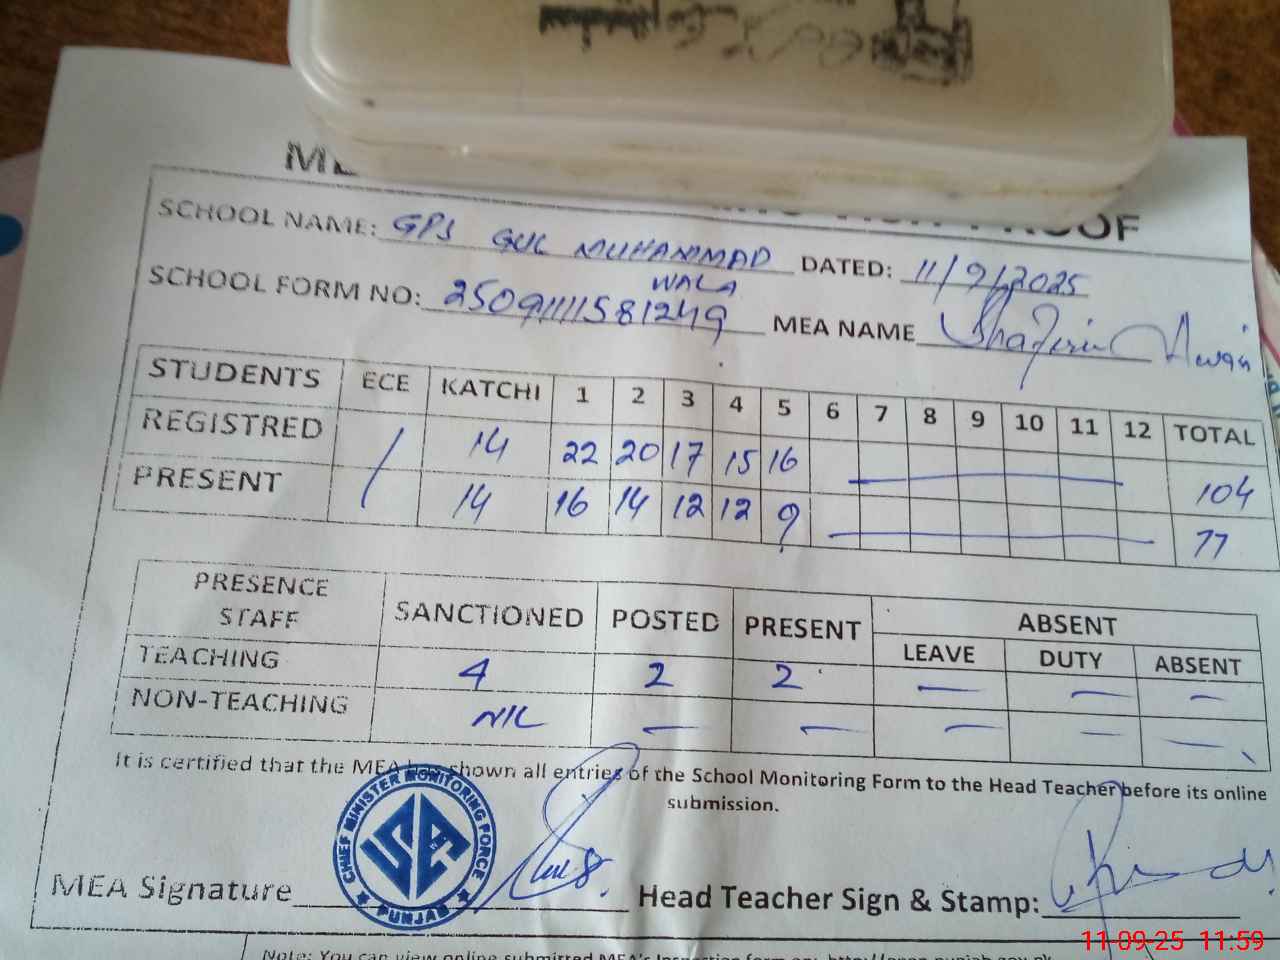 PROOF
SCHOOL NAME: GPS GUL MUHAMMAD WALA DATED: 11/9/2025
SCHOOL FORM NO: 25091111581249 MEA NAME
STUDENTS ECE KATCHI 1 2 3 4 5 6 7 8 9 10 11 12 TOTAL
REGISTRED / 14 22 20 17 15 16 — 104
PRESENT 14 16 14 12 12 9 — 77
PRESENCE STAFF SANCTIONED POSTED PRESENT ABSENT
LEAVE DUTY ABSENT
TEACHING 4 2 2 — — —
NON-TEACHING NIL — — — — —
It is certified that the MEA has shown all entries of the School Monitoring Form to the Head Teacher before its online
submission.
CHIEF MINISTER MONITORING FORCE
PUNJAB
MEA Signature Head Teacher Sign & Stamp:
Note: You can view online submitted MEA's Inspection form on:
11-09-25 11:59